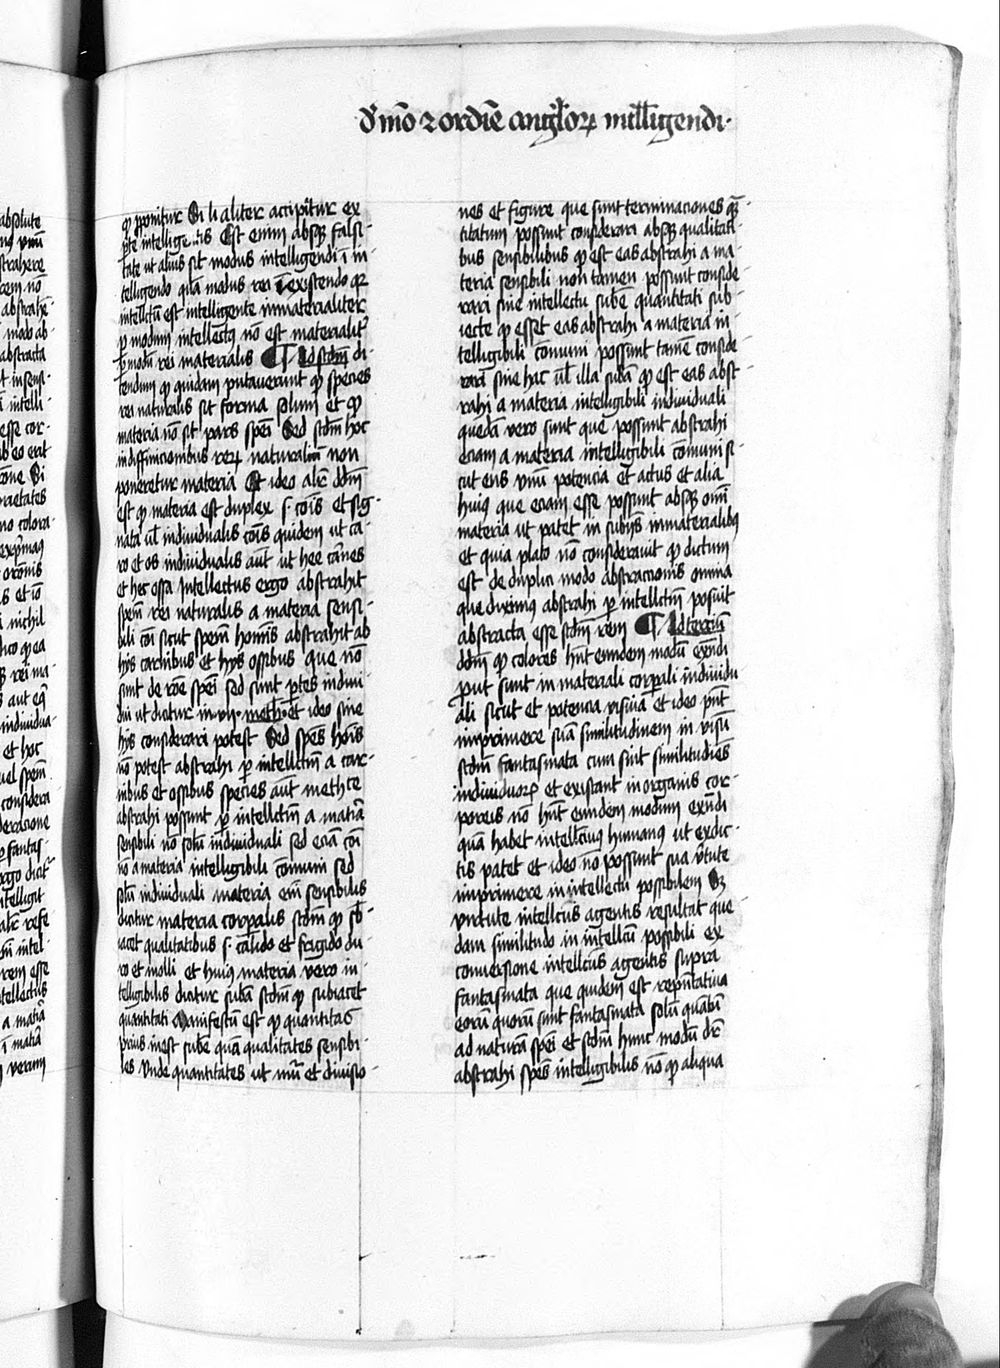 absolute
strahere
cem nō
abstrahē
modo ab
abstracta
t insensi
ā intelli
esse cor
rōne Si
prietates
no colora
orōnis
s et iō
nichil
rei ma
individua
et hoc
uel spēm
considera
deracione
ꝑ fantas
intel
rem esse
tellectus
a matiā
ī matiā
verum
d' mō ⁊ ordīe angl'oꝝ intell'igendi·
qḋ pponitur Si ū aliter accipītur ex
ꝑte intelligētis Est enim absqꝫ falsi
tate ut alius sit modus intelligendi ī in
telligendo quā modus rei ī existendo qꝛ
intellc̄tū est intelligente inmaterialiter
ꝑ modum intellectus nō est materialit'
ꝑ modū rei materialis ¶ Ad scdm di
cendum qḋ quidam putaverunt qḋ species
rei naturalis sit forma solum et qḋ
materia nō sit pars spēi Sed scdm hoc
in diffinicionibus reꝝ naturaliū non
poneretur materia Et ideo alit' dd̄m
est qḋ materia est duplex s· cōis et sig
nata ul' individualis cōis quidem ut ca
ro et os individualis aut' ut hee cārnes
et hec ossa Intellectus ergo abstrahit
spēm rei naturalis a materia sensi
bili cōi sicut spēm homīs abstrahit ab
hijs carnibus et hijs ossibus que nō
sunt de rōe spēi sed sunt ꝑtes indivi
dui ut dicitur in vij· meth· et ideo sine
hijs considerari potest Sed spēs hoīs
nō potest abstrahi ꝑ intellctm̄ a car
nibus et ossibus species aut' methce
abstrahi possunt ꝑ intellctm̄ a matiā
sensibili nō solū individuali sed eciā cōi
nō a materia intelligibili cōmuni sed
solū individuali materia em̄ sensibilis
dicitur materia corꝑalis scdm qḋ sb'
iacet qualitatibus s· cālido et frigido du
ro et molli et huiꝰ materia vero in
telligibilis dicitur subā scdm qḋ subiacet
quantitati Manifestū est qḋ quantitas
prius inest subē quā qualitates sensibi
les Unde quantitates ut nūi et dimēsio
nes et figure que sunt terminaciones quā
titatum possunt considerari absqꝫ qualitati
bus sensibilibus qḋ est eas abstrahi a ma
teria sensibili non tamen possunt conside
rari sine intellectu subē quantitati sub
iecte qḋ esset eas abstrahi a materia in
telligibili cōmuni possunt tamē conside
rari sine hac ul' illa subā qḋ est eas abst
rahi a materia intelligibili individuali
quedā vero sunt que possunt abstrahi
eciam a materia intelligibili cōmuni si
cut ens unū potencia et actus et alia
huiꝰ que eciam esse possunt absqꝫ omī
materia ut patet in subijs inmaterialibꝰ
et quia plato nō consideravit qḋ dictum
est de duplici modo abstractionis omnia
que diximꝰ abstrahi ꝑ intellctm̄ posuit
abstracta esse scdm rem ¶ Ad tercium
dd̄m qḋ colores hn̄t eundem modū exn̄di
put sunt in materiali corꝑali individu
ali sicut et potencia visiva et ideo pn̄t
imprimere suā similitudinem in visū
scdm fantasmata cum sint similitudiēs
individuoꝝ et existant in organis cor
poreis nō hn̄t eundem modum exn̄di
quā habet intellctus humanꝰ ut ex dic
tis patet et ideo nō possunt sua v̄tute
imprimere in intellectu possibilem Sꝫ
virtute intellctus agentis resultat que
dam similitudo in intellcū possibili ex
conversione intellctus agentis supra
fantasmata que quidem est rep̄ntativa
eorū quorū sunt fantasmata solū quātū
ad naturā spēi et scdm hunc modū dr̄
abstrahi spēs intelligibilis nō qḋ aliqua